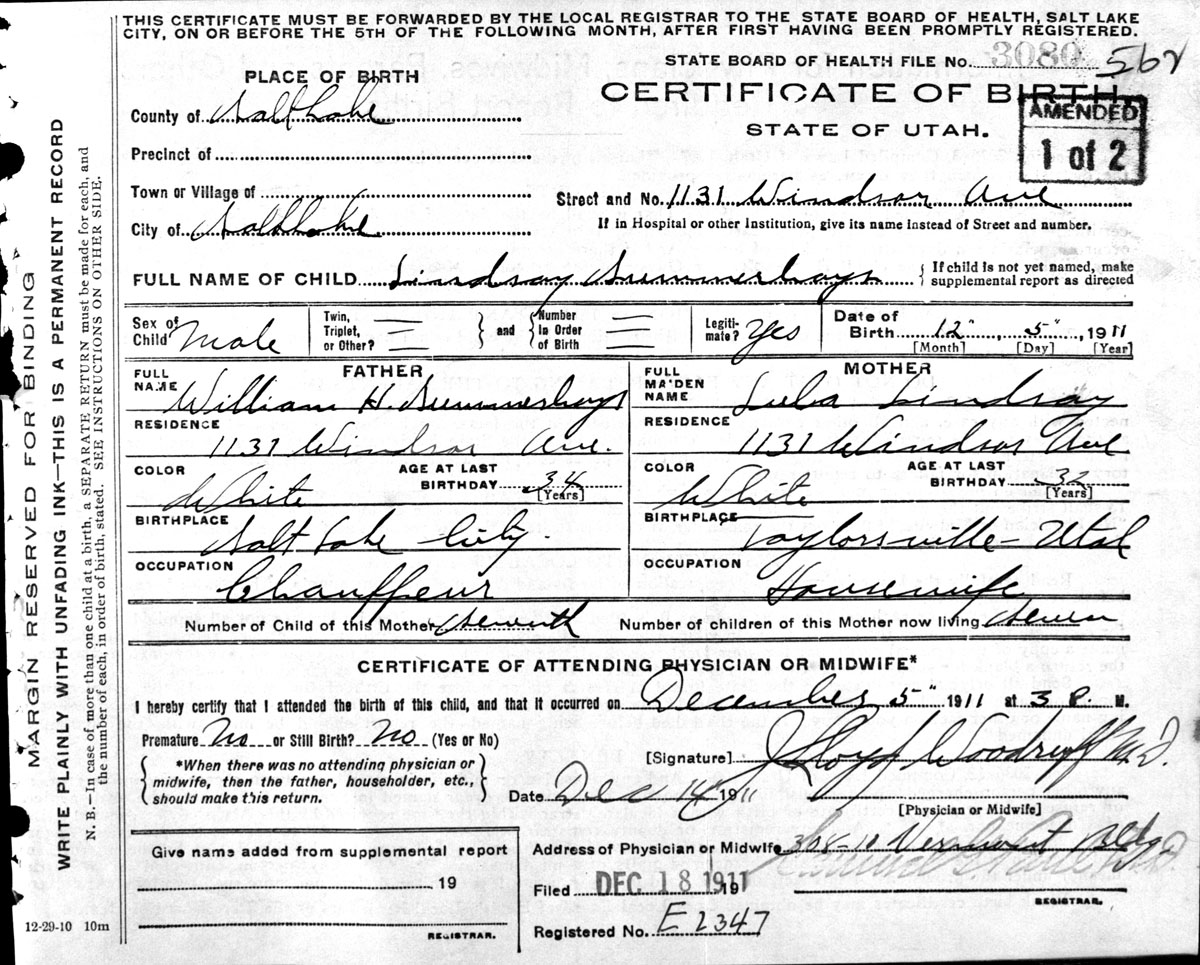 THIS CERTIFICATE MUST BE FORWARDED BY THE LOCAL REGISTRAR TO THE STATE BOARD OF HEALTH, SALT LAKE
CITY, ON OR BEFORE THE 5TH OF THE FOLLOWING MONTH, AFTER FIRST HAVING BEEN PROMPTLY REGISTERED.
STATE BOARD OF HEALTH FILE No. 3080 562
PLACE OF BIRTH
CERTIFICATE OF BIRTH.
AMENDED
1 of 2
STATE OF UTAH.
County of Salt Lake
Precinct of
Town or Village of
Street and No. 1131 Windsor Ave
City of Salt Lake
If in Hospital or other Institution, give its name instead of Street and number.
FULL NAME OF CHILD Lindsay Summerhays
If child is not yet named, make
supplemental report as directed
Sex of Child Male
Twin, Triplet, or Other?
and
Number in Order of Birth
Legiti-mate? Yes
Date of Birth 12" 5", 1911
[Month] [Day] [Year]
FATHER
FULL NAME William H. Summerhays
RESIDENCE
1131 Windsor Ave.
COLOR White
AGE AT LAST BIRTHDAY 34
[Years]
BIRTHPLACE
Salt Lake City.
OCCUPATION
Chauffeur
MOTHER
FULL MAIDEN NAME Lula Lindsay
RESIDENCE
1131 Windsor Ave
COLOR White
AGE AT LAST BIRTHDAY 32
[Years]
BIRTHPLACE
Taylorsville - Utah
OCCUPATION
Housewife
Number of Child of this Mother Seventh
Number of children of this Mother now living Seven
CERTIFICATE OF ATTENDING PHYSICIAN OR MIDWIFE*
I hereby certify that I attended the birth of this child, and that it occurred on December 5" 1911 at 3 P. M.
Premature No or Still Birth? No (Yes or No)
*When there was no attending physician or
midwife, then the father, householder, etc.,
should make this return.
[Signature] Lloyd Woodruff M.D.
Date Dec 14 1911
[Physician or Midwife]
Give name added from supplemental report
19
REGISTRAR.
Address of Physician or Midwife Bldg
Filed DEC 18 1911 191
REGISTRAR.
Registered No. E 2347
12-29-10 10m
MARGIN RESERVED FOR BINDING
WRITE PLAINLY WITH UNFADING INK—THIS IS A PERMANENT RECORD
N. B.—In case of more than one child at a birth, a SEPARATE RETURN must be made for each, and
the number of each, in order of birth, stated. SEE INSTRUCTIONS ON OTHER SIDE.